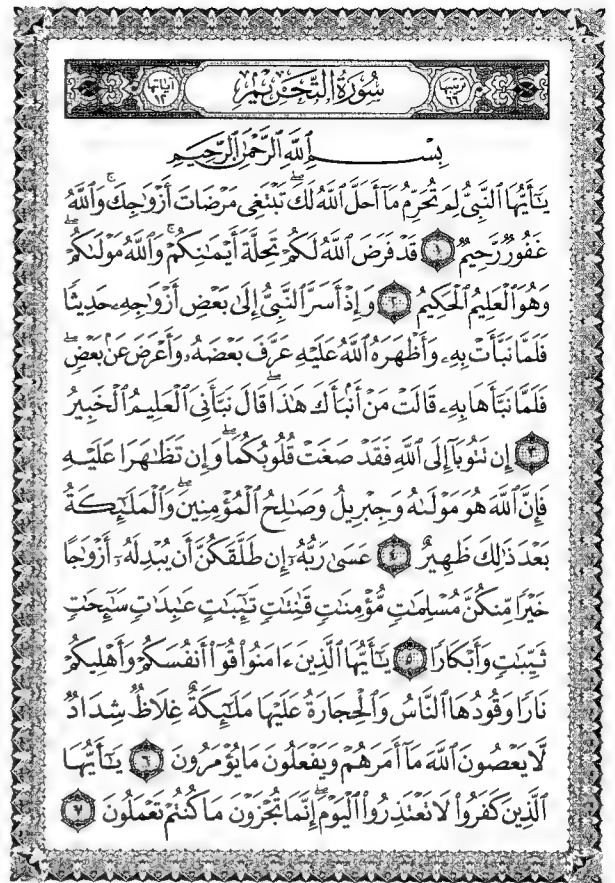 ترتيبها ٦٦ سُورَةُ التَّحْرِيْمِ آياتها ١٢
بِسْمِ ٱللَّهِ ٱلرَّحْمَٰنِ ٱلرَّحِيمِ
يَٰٓأَيُّهَا ٱلنَّبِىُّ لِمَ تُحَرِّمُ مَآ أَحَلَّ ٱللَّهُ لَكَ ۖ تَبْتَغِى مَرْضَاتَ أَزْوَٰجِكَ ۚ وَٱللَّهُ
غَفُورٌ رَّحِيمٌ ١ قَدْ فَرَضَ ٱللَّهُ لَكُمْ تَحِلَّةَ أَيْمَٰنِكُمْ ۚ وَٱللَّهُ مَوْلَىٰكُمْ ۖ
وَهُوَ ٱلْعَلِيمُ ٱلْحَكِيمُ ٢ وَإِذْ أَسَرَّ ٱلنَّبِىُّ إِلَىٰ بَعْضِ أَزْوَٰجِهِۦ حَدِيثًا
فَلَمَّا نَبَّأَتْ بِهِۦ وَأَظْهَرَهُ ٱللَّهُ عَلَيْهِ عَرَّفَ بَعْضَهُۥ وَأَعْرَضَ عَنۢ بَعْضٍ ۖ
فَلَمَّا نَبَّأَهَا بِهِۦ قَالَتْ مَنْ أَنۢبَأَكَ هَٰذَا ۖ قَالَ نَبَّأَنِىَ ٱلْعَلِيمُ ٱلْخَبِيرُ
٣ إِن تَتُوبَآ إِلَى ٱللَّهِ فَقَدْ صَغَتْ قُلُوبُكُمَا ۖ وَإِن تَظَٰهَرَا عَلَيْهِ
فَإِنَّ ٱللَّهَ هُوَ مَوْلَىٰهُ وَجِبْرِيلُ وَصَٰلِحُ ٱلْمُؤْمِنِينَ ۖ وَٱلْمَلَٰٓئِكَةُ
بَعْدَ ذَٰلِكَ ظَهِيرٌ ٤ عَسَىٰ رَبُّهُۥٓ إِن طَلَّقَكُنَّ أَن يُبْدِلَهُۥٓ أَزْوَٰجًا
خَيْرًا مِّنكُنَّ مُسْلِمَٰتٍ مُّؤْمِنَٰتٍ قَٰنِتَٰتٍ تَٰٓئِبَٰتٍ عَٰبِدَٰتٍ سَٰٓئِحَٰتٍ
ثَيِّبَٰتٍ وَأَبْكَارًا ٥ يَٰٓأَيُّهَا ٱلَّذِينَ ءَامَنُوا۟ قُوٓا۟ أَنفُسَكُمْ وَأَهْلِيكُمْ
نَارًا وَقُودُهَا ٱلنَّاسُ وَٱلْحِجَارَةُ عَلَيْهَا مَلَٰٓئِكَةٌ غِلَاظٌ شِدَادٌ
لَّا يَعْصُونَ ٱللَّهَ مَآ أَمَرَهُمْ وَيَفْعَلُونَ مَا يُؤْمَرُونَ ٦ يَٰٓأَيُّهَا
ٱلَّذِينَ كَفَرُوا۟ لَا تَعْتَذِرُوا۟ ٱلْيَوْمَ ۖ إِنَّمَا تُجْزَوْنَ مَا كُنتُمْ تَعْمَلُونَ ٧